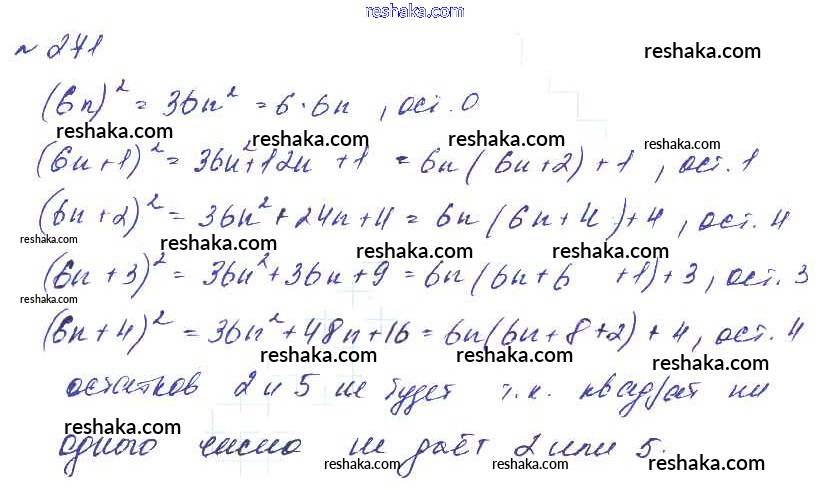 reshaka.com
№ 271
reshaka.com
(6n)² = 36n² = 6·6n , ост. 0
reshaka.com reshaka.com reshaka.com reshaka.com
(6n+1)² = 36n²+12n +1 = 6n(6n+2)+1 , ост. 1
(6n+2)² = 36n²+24n+4 = 6n(6n+4)+4 , ост. 4
reshaka.com reshaka.com reshaka.com reshaka.com
(6n+3)² = 36n²+36n+9 = 6n(6n+6 +1)+3 , ост. 3
reshaka.com
(6n+4)² = 36n²+48n+16 = 6n(6n+8+2)+4 , ост. 4
reshaka.com reshaka.com reshaka.com
остатков 2 и 5 не будет т.к. квадрат ни
reshaka.com reshaka.com reshaka.com
одного число не даёт 2 или 5.
reshaka.com reshaka.com